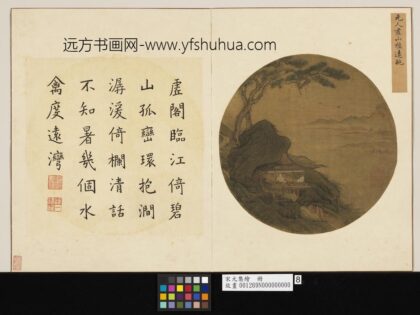 远方书画网-www.yfshuhua.com
元人 山 遠眺
虛閣臨江倚碧
山孤巒環抱澗
潺湲倚欄清話
不知暑幾個水
禽度遠灣
宋元集繪 冊
故畫 001289N000000000
8